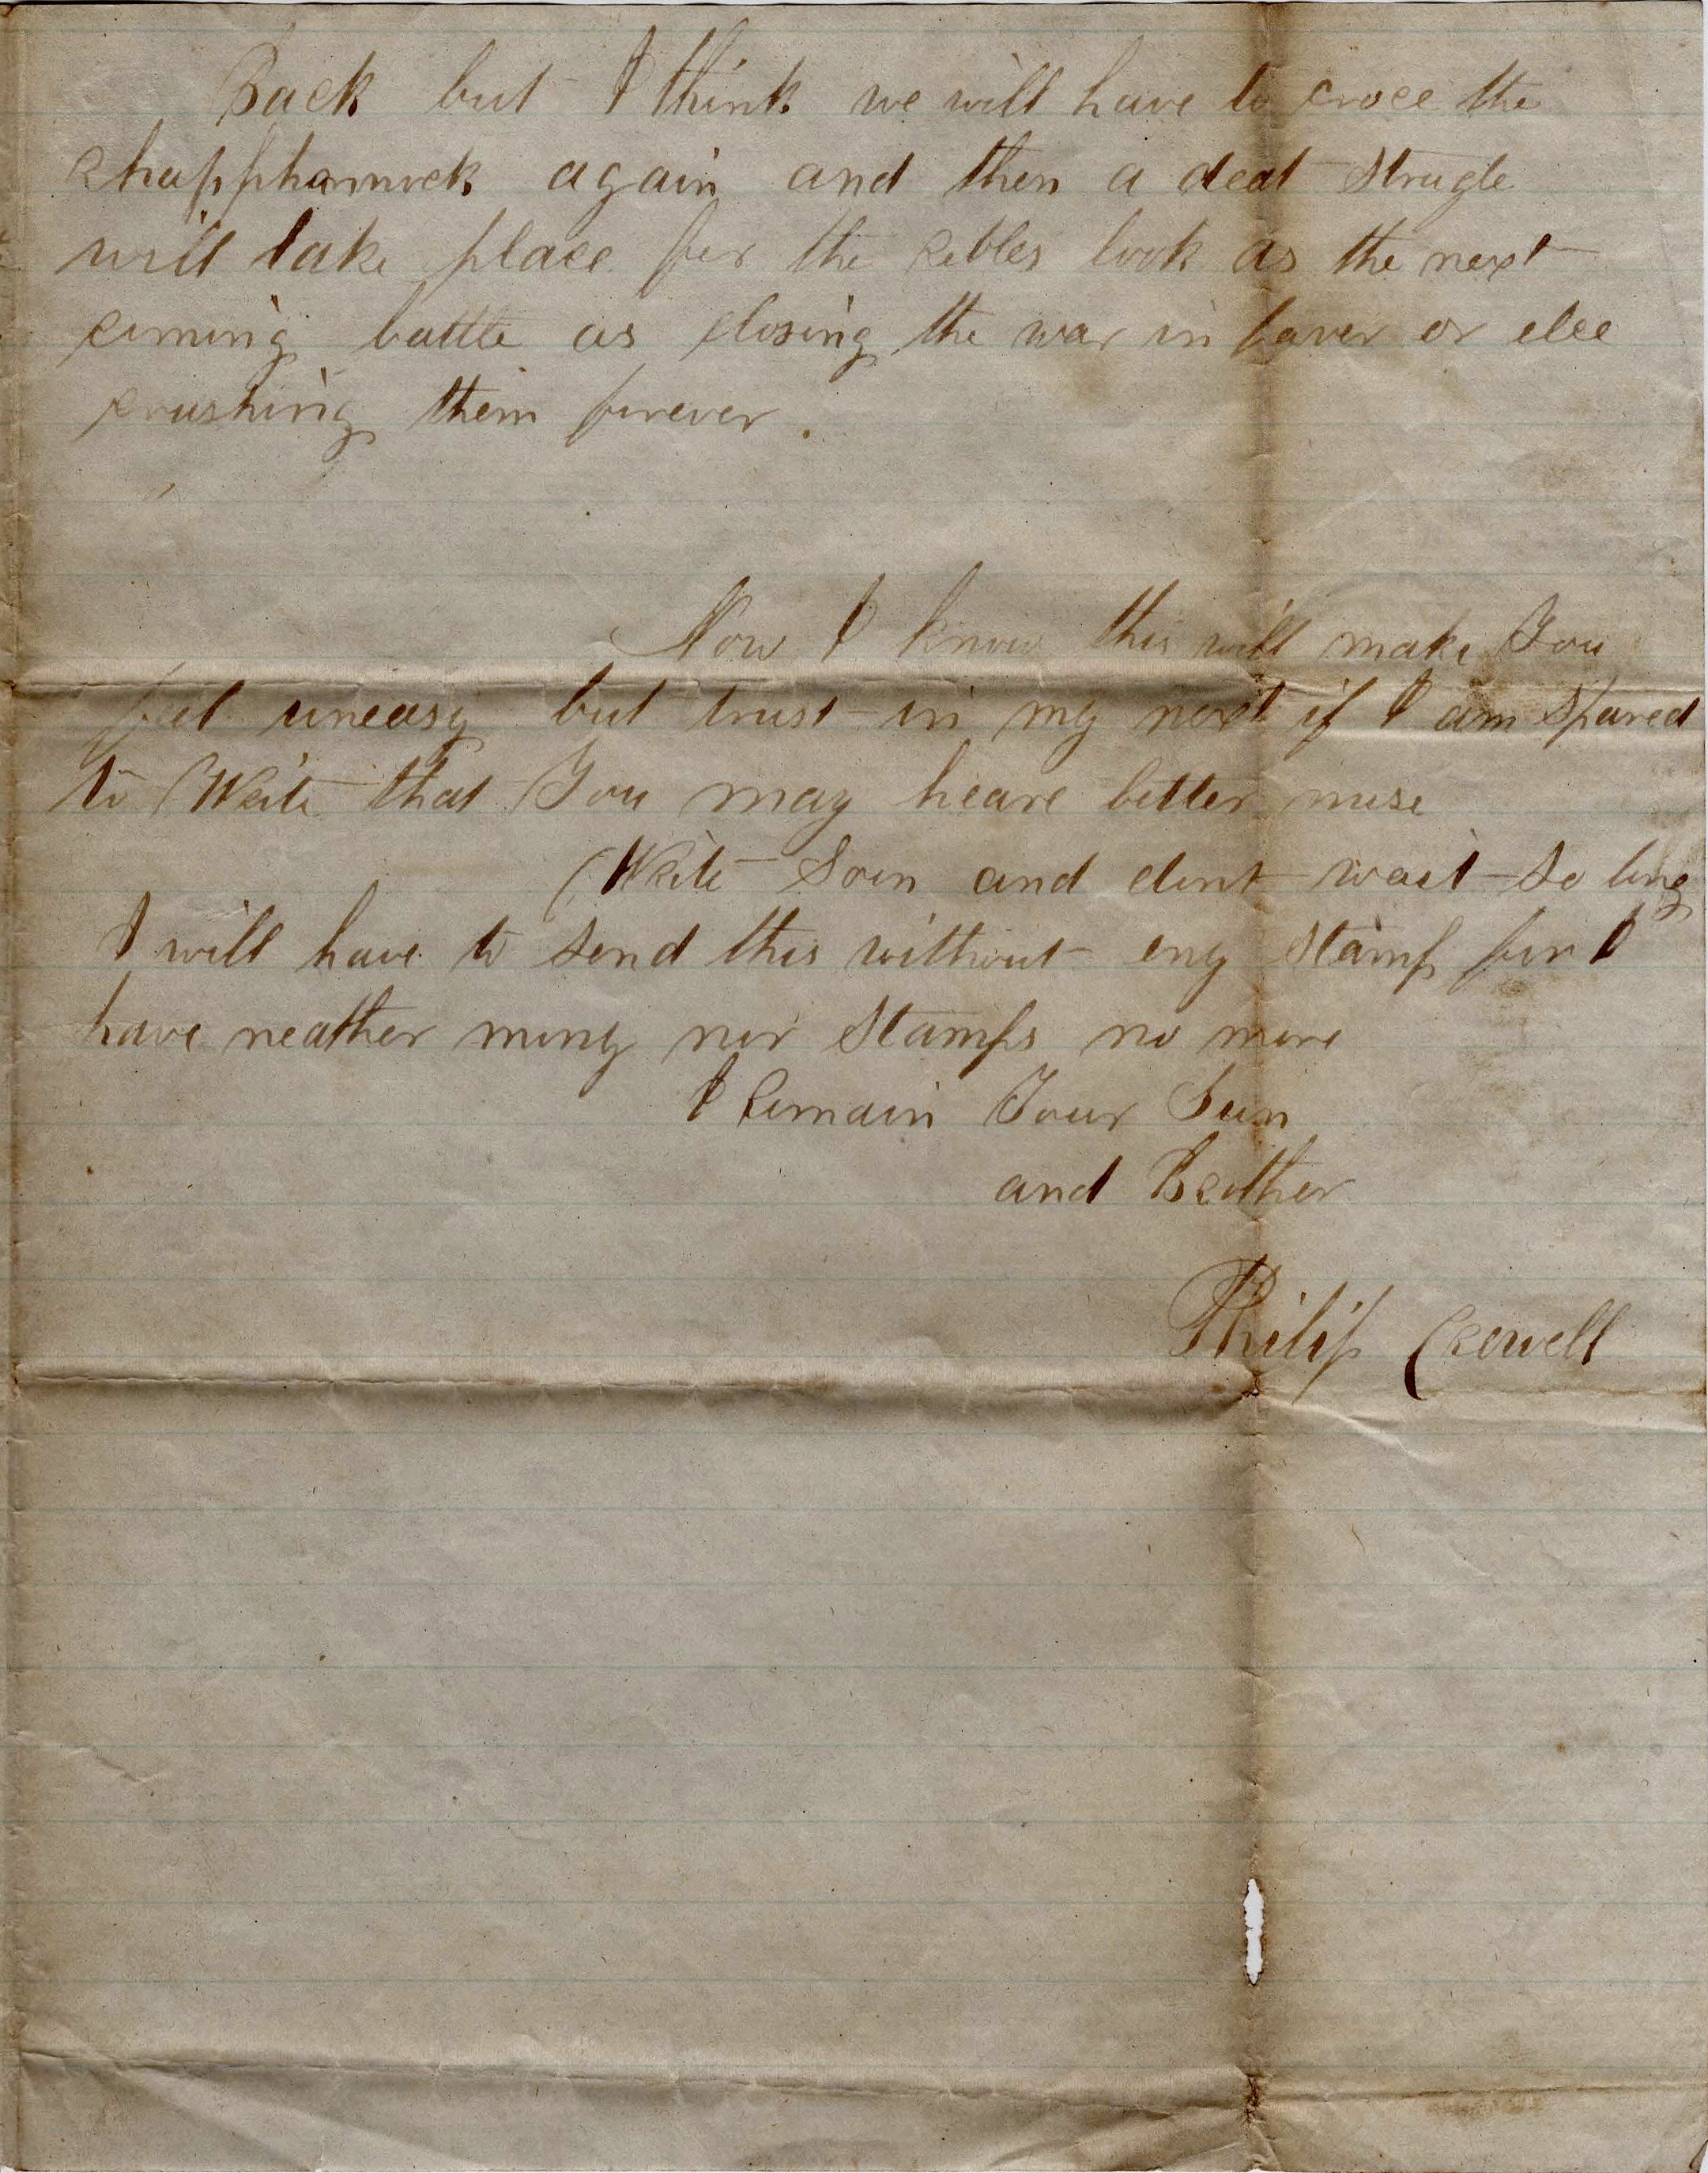 Back but I think we will have to croce the
Rhapphamock again and then a deat strugle
will take place for the Rebles look as the next
coming battle as closing the war in faver or elce
crushing them forever.
Now I know this will make You
feel uneasy but trust in my next if I am spared
to Write that You may heare better nuse
Write Soon and dont wait so long
I will have to send this without eny stamp for I
have neather mony nor stamps no more
I Remain Your Sun
and Brother
Philip Crowell